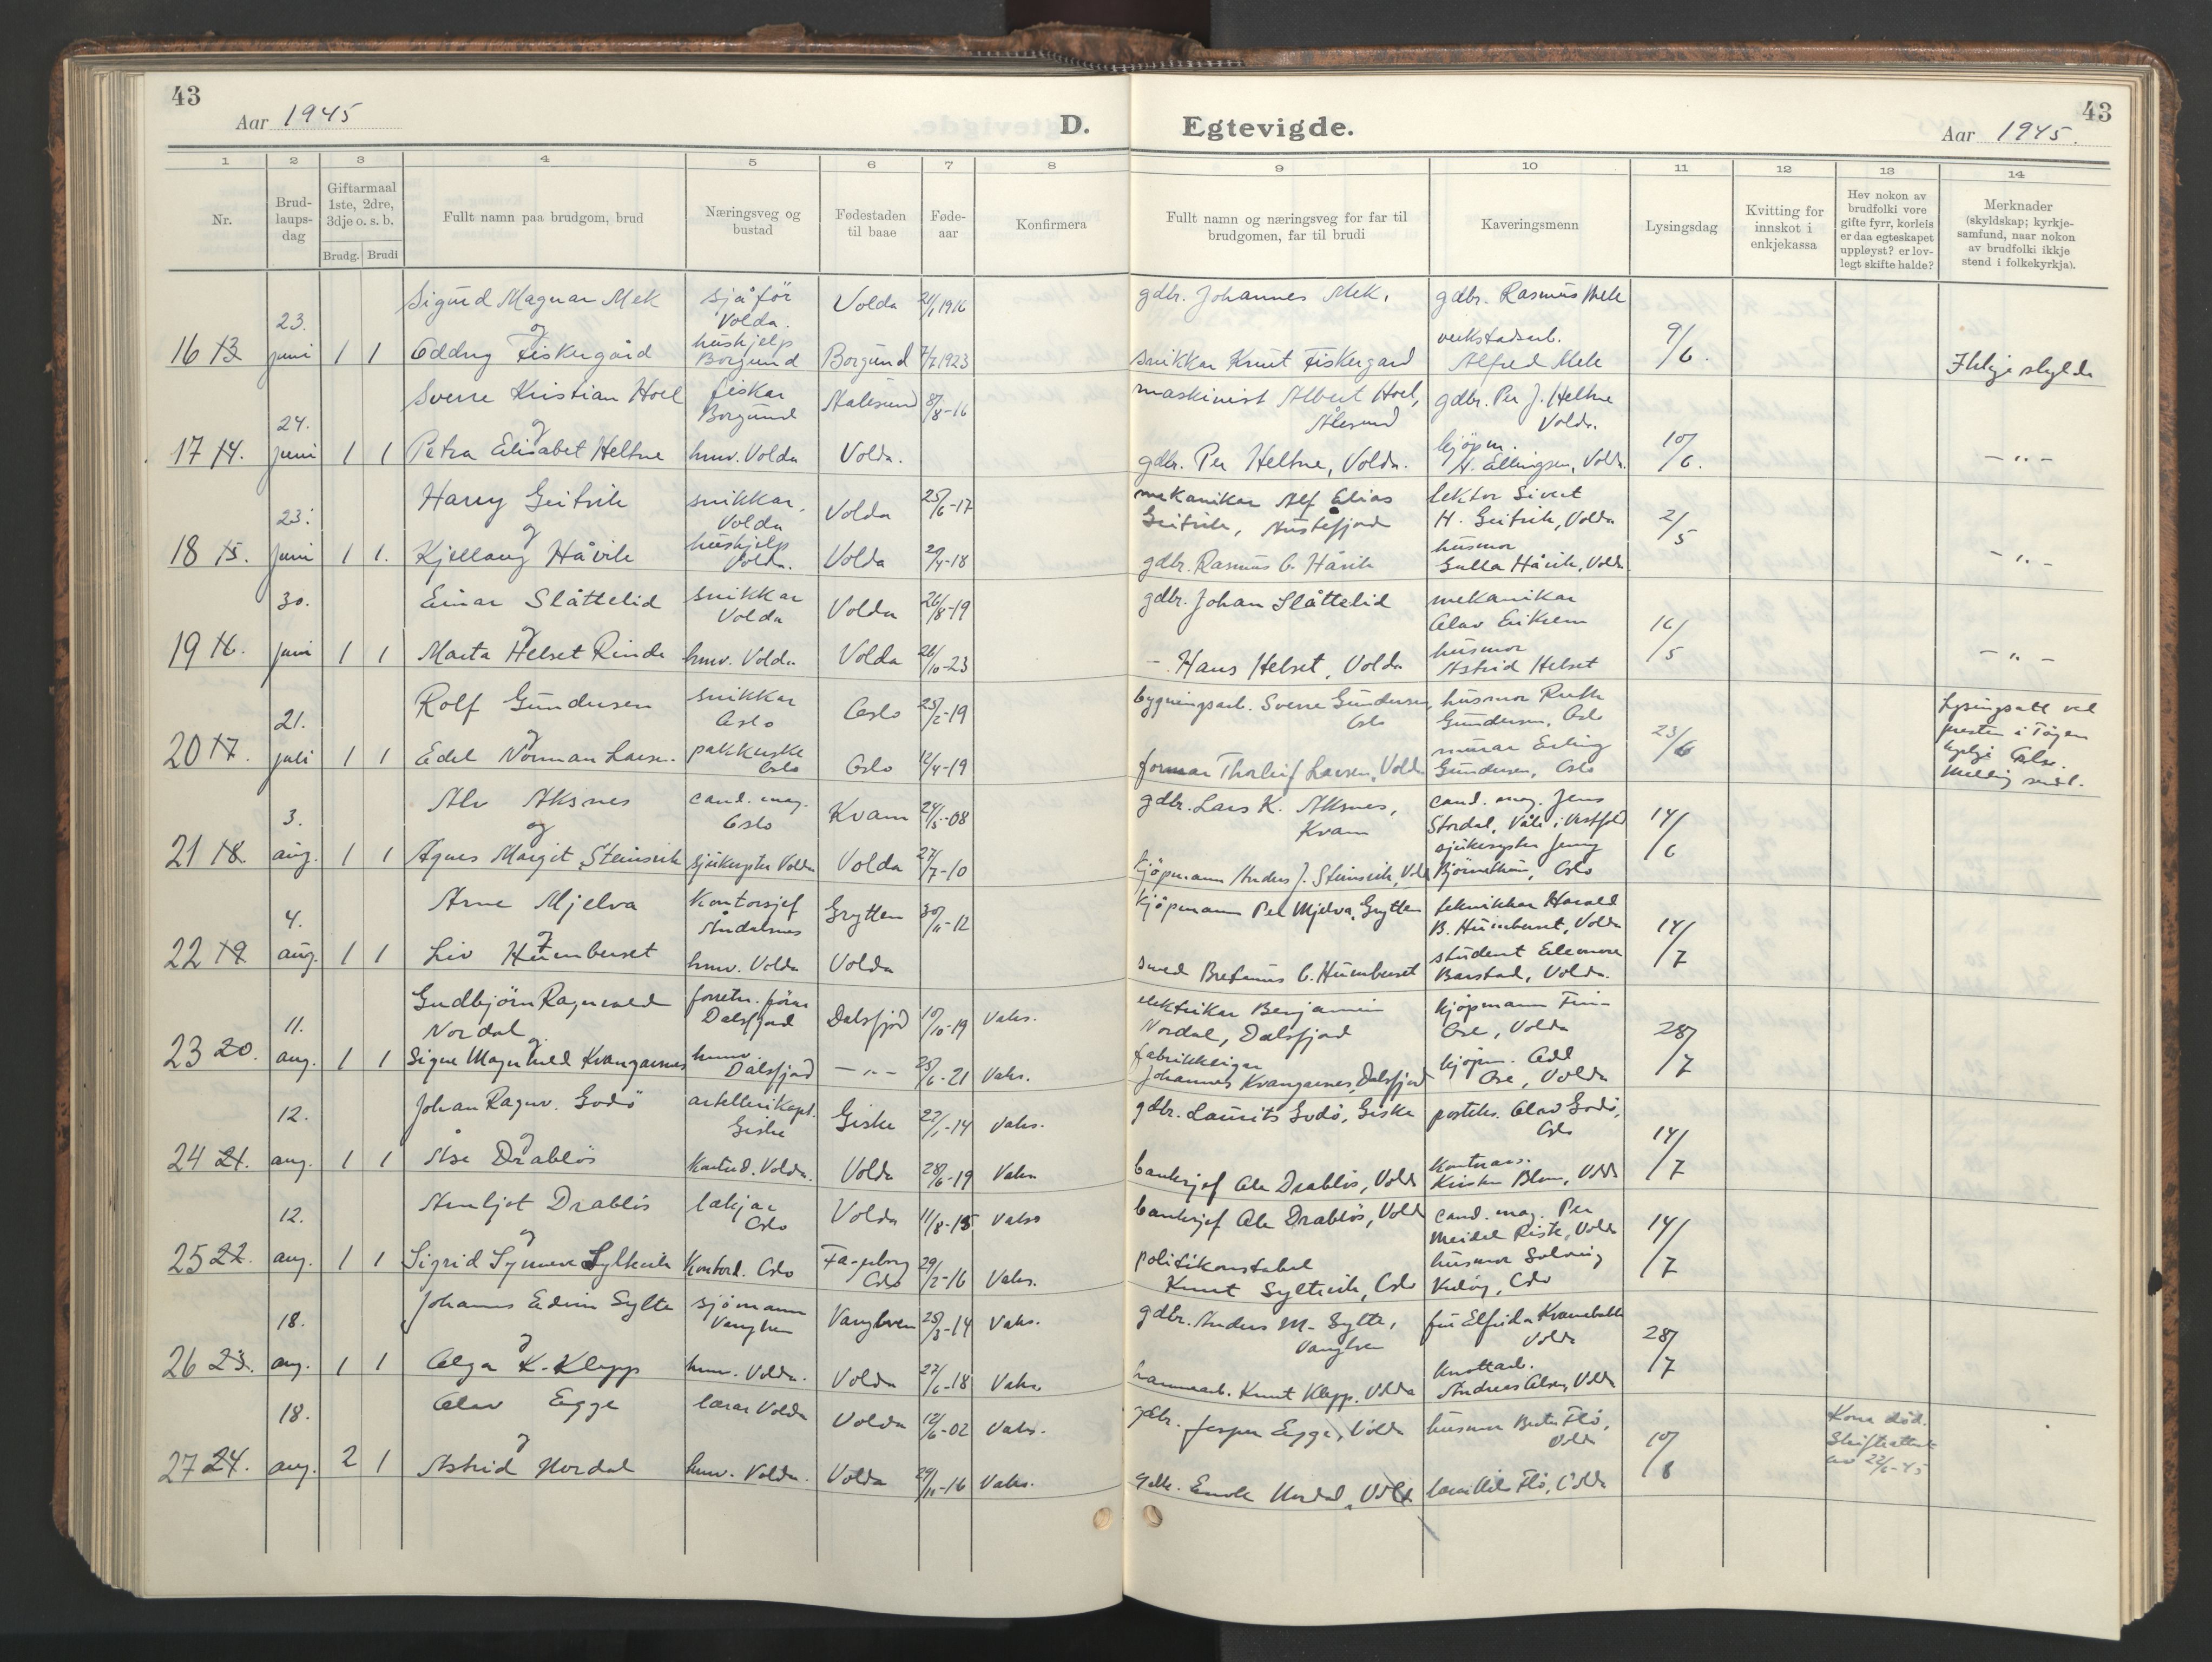 43
Aar 1945
D.
Egtevigde.
43
Aar 1945.
1 2 3 4 5 6 7 8 9 10 11 12 13 14
Nr.
Brud-
laups-
dag
Giftarmaal
1ste, 2dre,
3dje o. s. b.
Brudg. Brudi
Fullt namn paa brudgom, brud
Næringsveg og
bustad
Fødestaden
til baae
Føde-
aar
Konfirmera
Fullt namn og næringsveg for far til
brudgomen, far til brudi
Kaveringsmenn
Lysingsdag
Kvitting for
innskot i
enkjekassa
Hev nokon av
brudfolki vore
gifte fyrr, korleis
er daa egteskapet
uppløyst? er lov-
legt skifte halde?
Merknader
(skyldskap; kyrkje-
samfund, naar nokon
av brudfolki ikkje
stend i folkekyrkja).
Sigurd Magnar Mek sjåför Volda. Volda 21/1 1916 gdbr. Johannes Mek. gdbr. Rasmus Mek
16 13 23. juni 1 1 og Oddny Fiskergård hushjelp Borgund Borgund 7/7 1923 snikkar Knut Fiskergard verkstadsarb. Alfred Mek 9/6. Ikkje skylde
Sverre Kristian Hoel fiskar Borgund Aalesund 8/8-16 maskinist Albert Hoel, Ålesund gdbr. Per J. Heltne Volda.
17 14. 24. juni 1 1 og Petra Elisabet Heltne hmv. Volda Volda. gdbr. Per Heltne, Volda. kjöpm. H. Ellingsen, Volda. 10/6. - " -
Harry Geitvik snikkar, Volda Volda 25/6-17 mekanikar Alf Elias Geitvik, Austefjord lektor Sivert H. Geitvik, Volda
18 15. 23. juni 1 1. og Kjellaug Håvik hushjelp Volda. Volda 2/4-18 gdbr. Rasmus O. Håvik husmor Gulla Håvik, Volda 2/5 - " -
Einar Slåttelid snikkar Volda Volda 26/8-19 gdbr. Johan Slåttelid mekanikar Olav Eiksem
19 16. 30. juni 1 1 og Marta Helset Rinde hmv. Volda Volda 26/10-23 - Hans Helset, Volda husmor Astrid Helset 16/5 - " -
Rolf Gundersen snikkar Oslo Oslo 25/2-19 bygningsarb. Sverre Gundersen, Oslo husmor Ruth Gundersen, Oslo
20 17. 21. juli 1 1 og Edel Norman Larsen. pakkerske Oslo Oslo 12/4-19 formar Thorleif Larsen, Volda murar Erling Gundersen, Oslo 23/6 Lysingsatt ved presten i Töyen kyrkje Oslo.
Alv Aksnes cand. mag. Oslo Kvam 24/5-08 gdbr. Lars K. Aksnes, Kvam cand. mag. Jens Stordal, Våle i Vestfold
21 18. 3. aug. 1 1 og Agnes Margit Steinsvik sjukesyster Volda Volda 27/7-10 kjöpmann Anders J. Steinsvik, Volda sjukesyster Jenny 14/6 Oslo
Arne Mjelva Kontorsjef Åndalsnes Grytten 30/11-12 kjöpmann Per Mjelva, Grytten teknikkar Harald B. Humberset, Volda
22 19 4. aug. 1 1 og Liv Humberset hmv. Volda Volda smed Bretanus C. Humberset student Eleonore Barstad, Volda. 14/7
Gudbjörn Ragnvald Nordal forretn. förar Dalsfjord Dalsfjord 10/10-19 Vaks. elektrikar Benjamin Nordal, Dalsfjord kjöpmann Finn Ose, Volda
23 20. 11. aug. 1 1 og Signe Magnhild Kvangarsnes hmv. Dalsfjord - " - 25/6-21 Vaks. fabrikkeigar Johannes Kvangarsnes, Dalsfjord kjöpm. Odd Ose, Volda 28/7
Johan Ragnv. Godö artellerikapt. Giske Giske 22/1-14 Vaks. gdbr. Laurits Godö, Giske posteks. Olav Godö, Oslo
24 21. 12. aug. 1 1 og Åse Drablös Kontord. Volda. Volda 28/6-19 Vaks banksjef Ole Drablös, Volda Kontorass. Kirsten Blom, Volda 14/7
Arnljot Drablös lækjar Oslo Volda 11/8-15 Vaks banksjef Ole Drablös, Volda cand. mag. Per Meidel Riste, Volda
25 22. 12. aug. 1 1 og Sigrid Synneve Syltevik Kontord. Oslo Fagerborg Oslo 29/2-16 Vaks. politikonstabel Knut Syltevik, Oslo husmor Solveig Oslo 14/7
Johannes Edvin Sylte sjömann Vanylven Vanylven 25/3-14 Vaks. gdbr. Anders M. Sylte, Vanylven fru Elfrida Volda
26 23. 18. aug. 1 1 og Olga K. Klepp hmv. Volda. Volda 27/6-18 Vaks Knut Klepp, Volda Andreas Volda 28/7
Olav Egge lærar Volda Volda 12/6-02 Vaks. gdbr. Jesper Egge, Volda husmor Flö, Volda
27 24. 18. aug. 2 1 og Astrid Nordal hmv. Volda. Volda 29/11-16 Vaks. gdbr. Enok Nordal, Volda Flö, Volda 10/8 Kona död. Skifteattest av 22/6-45